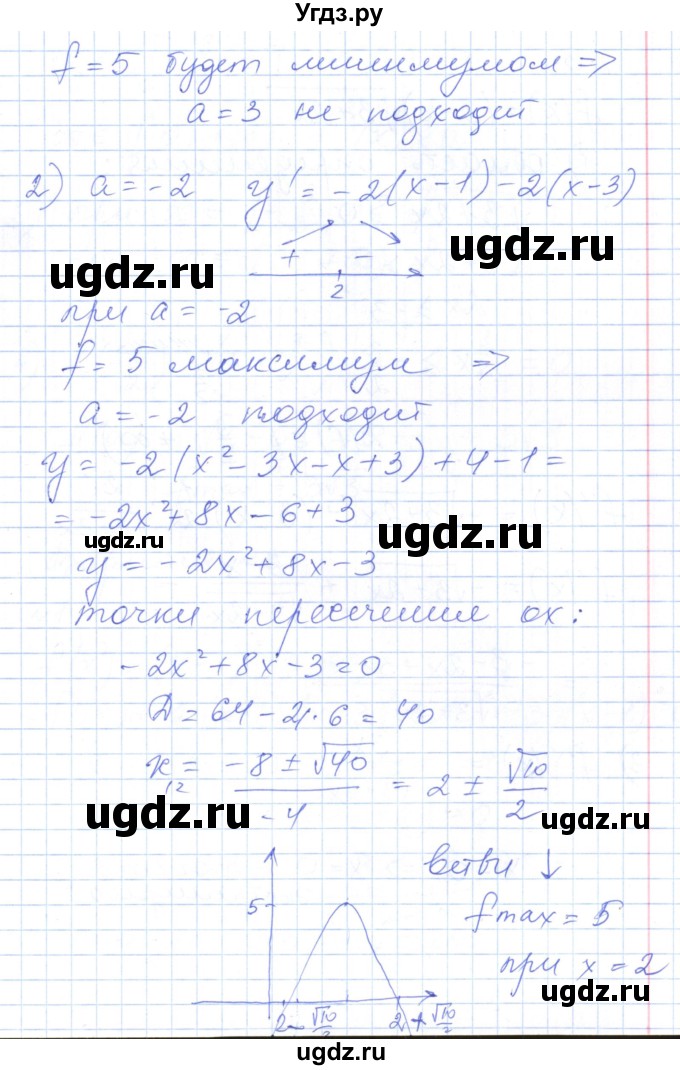 Угдз.ру
f = 5 будет минимумом ⇒
a = 3 не подходит
2) a = -2 y' = -2(x-1) - 2(x-3)
ugdz.ru
+ -
ugdz.ru
2
при a = -2
f = 5 максимум ⇒
a = -2 подходит
y = -2(x² - 3x - x + 3) + 4 - 1 =
= -2x² + 8x - 6 + 3
ugdz.ru
ugdz.ru
y = -2x² + 8x - 3
точки пересечения ox:
-2x² + 8x - 3 = 0
D = 64 - 4·6 = 40
x₁₂ = (-8 ± √40)/(-4) = 2 ± √10/2
ugdz.ru
ветви ↓
5
fmax = 5
при x = 2
ugdz.ru
2 - √10/2 2 + √10/2
ugdz.ru